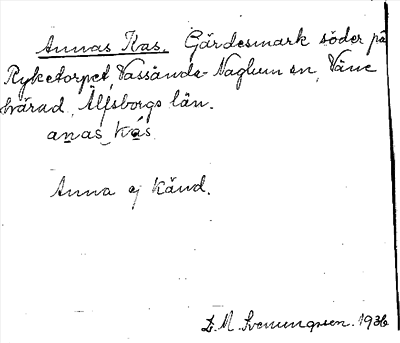 Annas Kas. Gärdesmark söder på
Ryketorpet, Vassända-Naglum sn, Väne
härad, Älfsborgs län.
anas kás
Anna ej känd.
L. M. Svenungsson. 1936